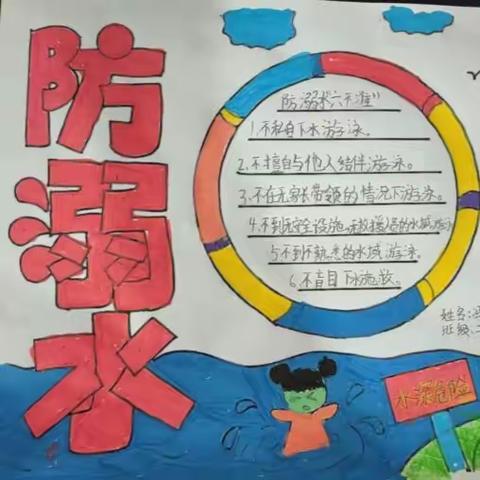 防溺水
防溺水“六不准”
1.不私自下水游泳。
2.不擅自与他人结伴游泳。
3.不在无家长带领的情况下游泳。
4.不到无安全设施、无救援人员的水域游泳
5.不到不熟悉的水域游泳。
6.不盲目下水施救。
姓名:
班级:
水深危险